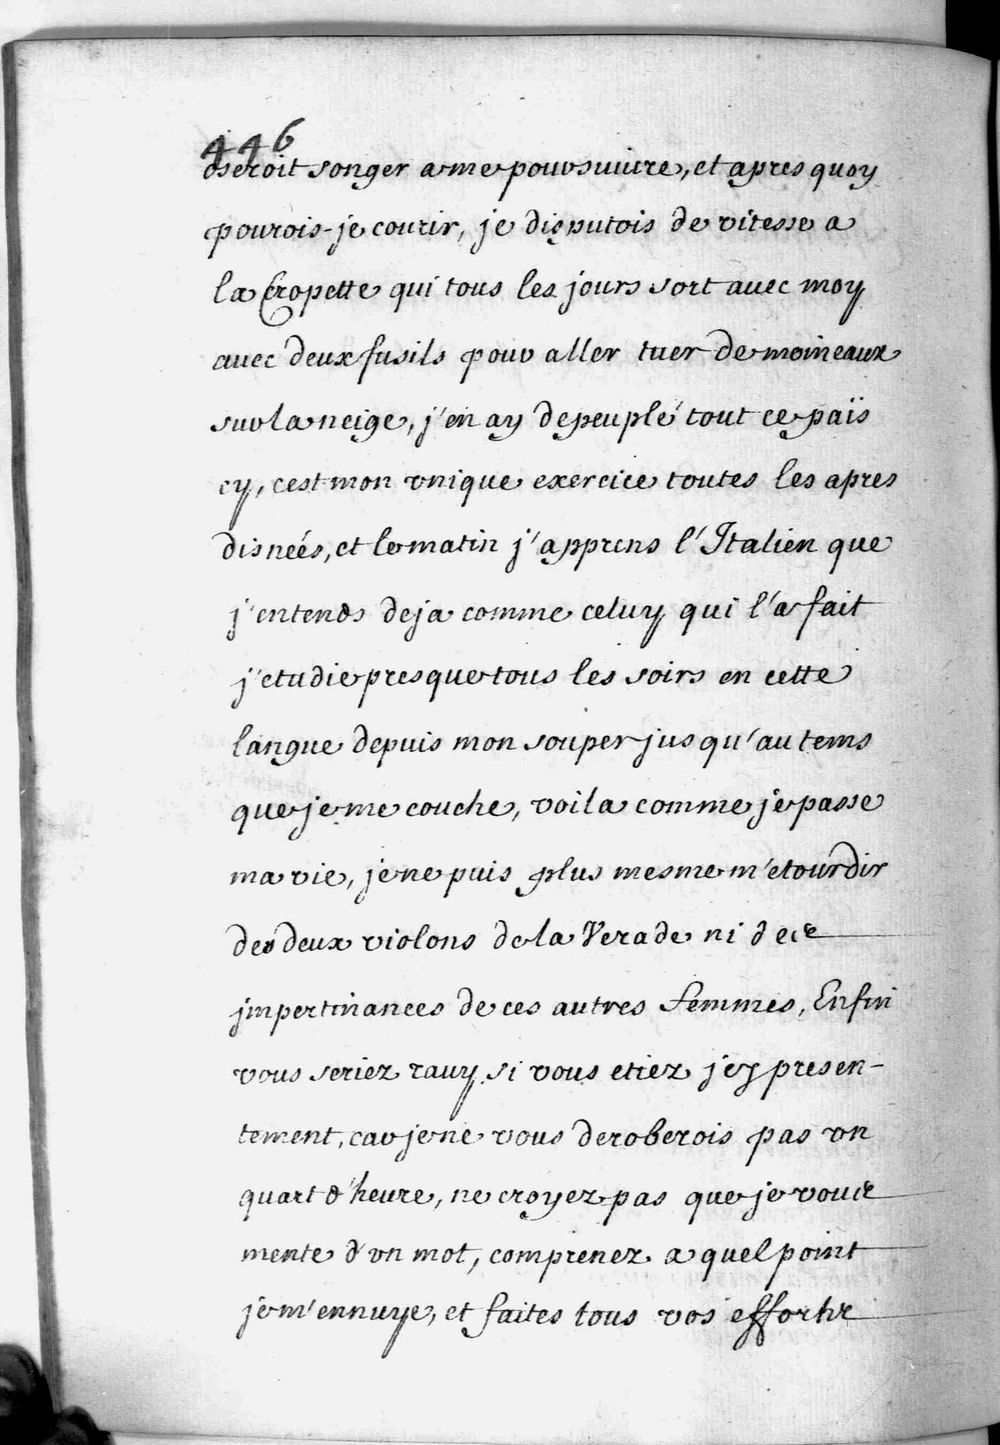 446
oseroit songer a me poursuivre, et apres quoy
pourois-je courir, je disputois de vitesse a
la Cropette qui tous les jours sort avec moy
avec deux fusils pour aller tuer de moineaux
sur la neige, j'en ay depeuplé tout ce païs
cy, cest mon vnique exercice toutes les apres
disneés, et le matin j'apprens l'Italien que
j'entends deja comme celuy qui l'a fait
j'etudie presque tous les soirs en cette
langue depuis mon souper jusqu'au tems
que je me couche, voila comme je passe
ma vie, je ne puis plus mesme m'etourdir
des deux violons de la Verade ni des
jmpertinances de ces autres femmes, Enfin
vous seriez ravy si vous etiez jcy presen-
tement, car je ne vous deroberois pas vn
quart d'heure, ne croyez pas que je vous
mente d'vn mot, comprenez a quel point
je m'ennuye, et faites tous vos efforts